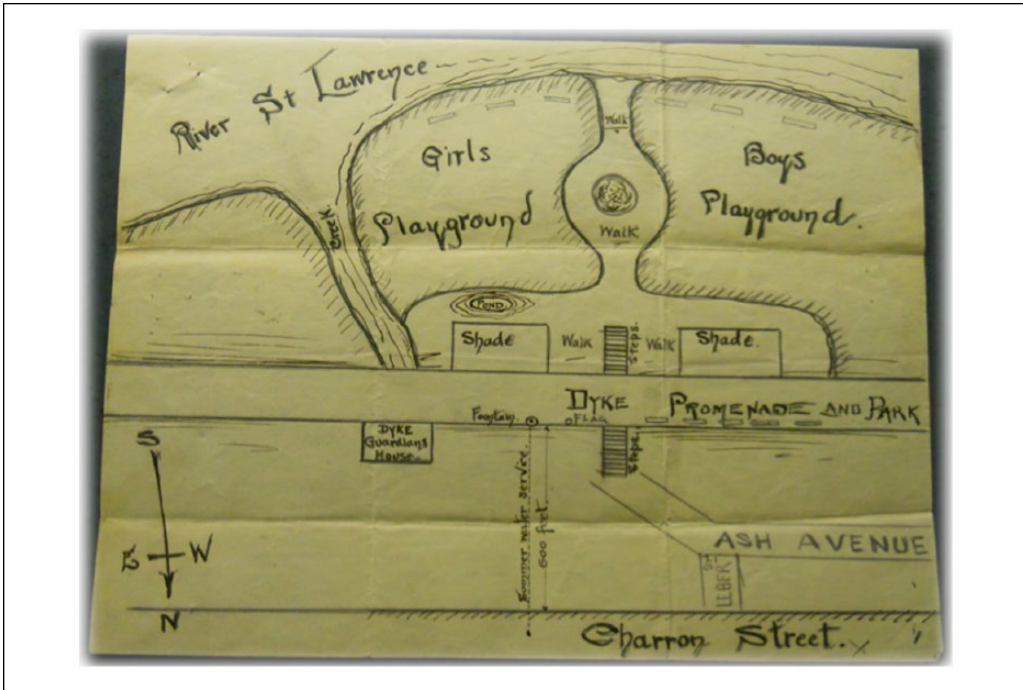 River St Lawrence
Girls
Playground
Walk
Boys
Playground.
Walk
Creek.
POND.
Shade
Walk
Steps.
Walk
Shade.
DYKE
PROMENADE AND PARK
Fountain.
FLAG
DYKE
Guardians
House.
Steps.
Summer water service.
600 feet.
S
E
W
N
ASH AVENUE
LEBER
ST
Charron Street.